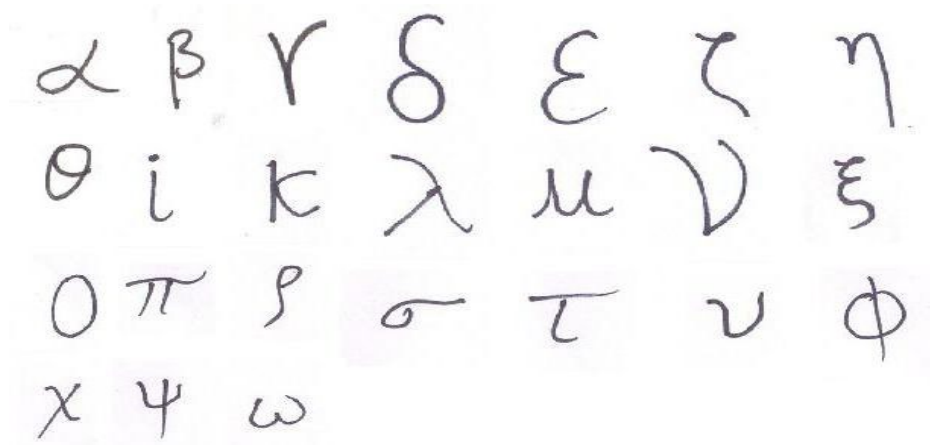 α β γ δ ε ζ η
θ i κ λ μ ν ξ
ο π ρ σ τ υ φ
χ ψ ω